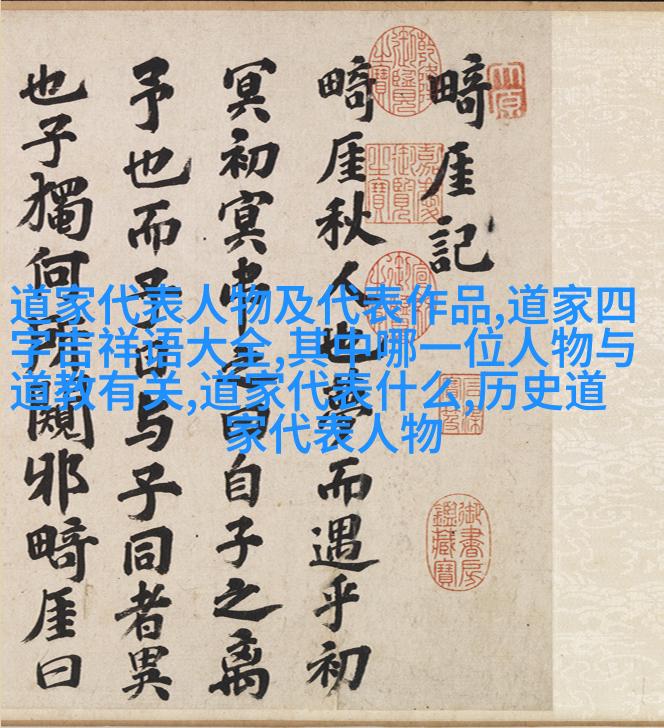 畸厓記
畸厓秋人也夢而遇乎初
冥初冥曰自子之离
予也而与子同者異
也子獨何邪畸厓曰
道家代表人物及代表作品,道家四
字吉祥语大全,其中哪一位人物与
道教有关,道家代表什么,历史道
家代表人物
乾隆御覽之寶
嘉慶御覽之寶
御書房鑑藏寶